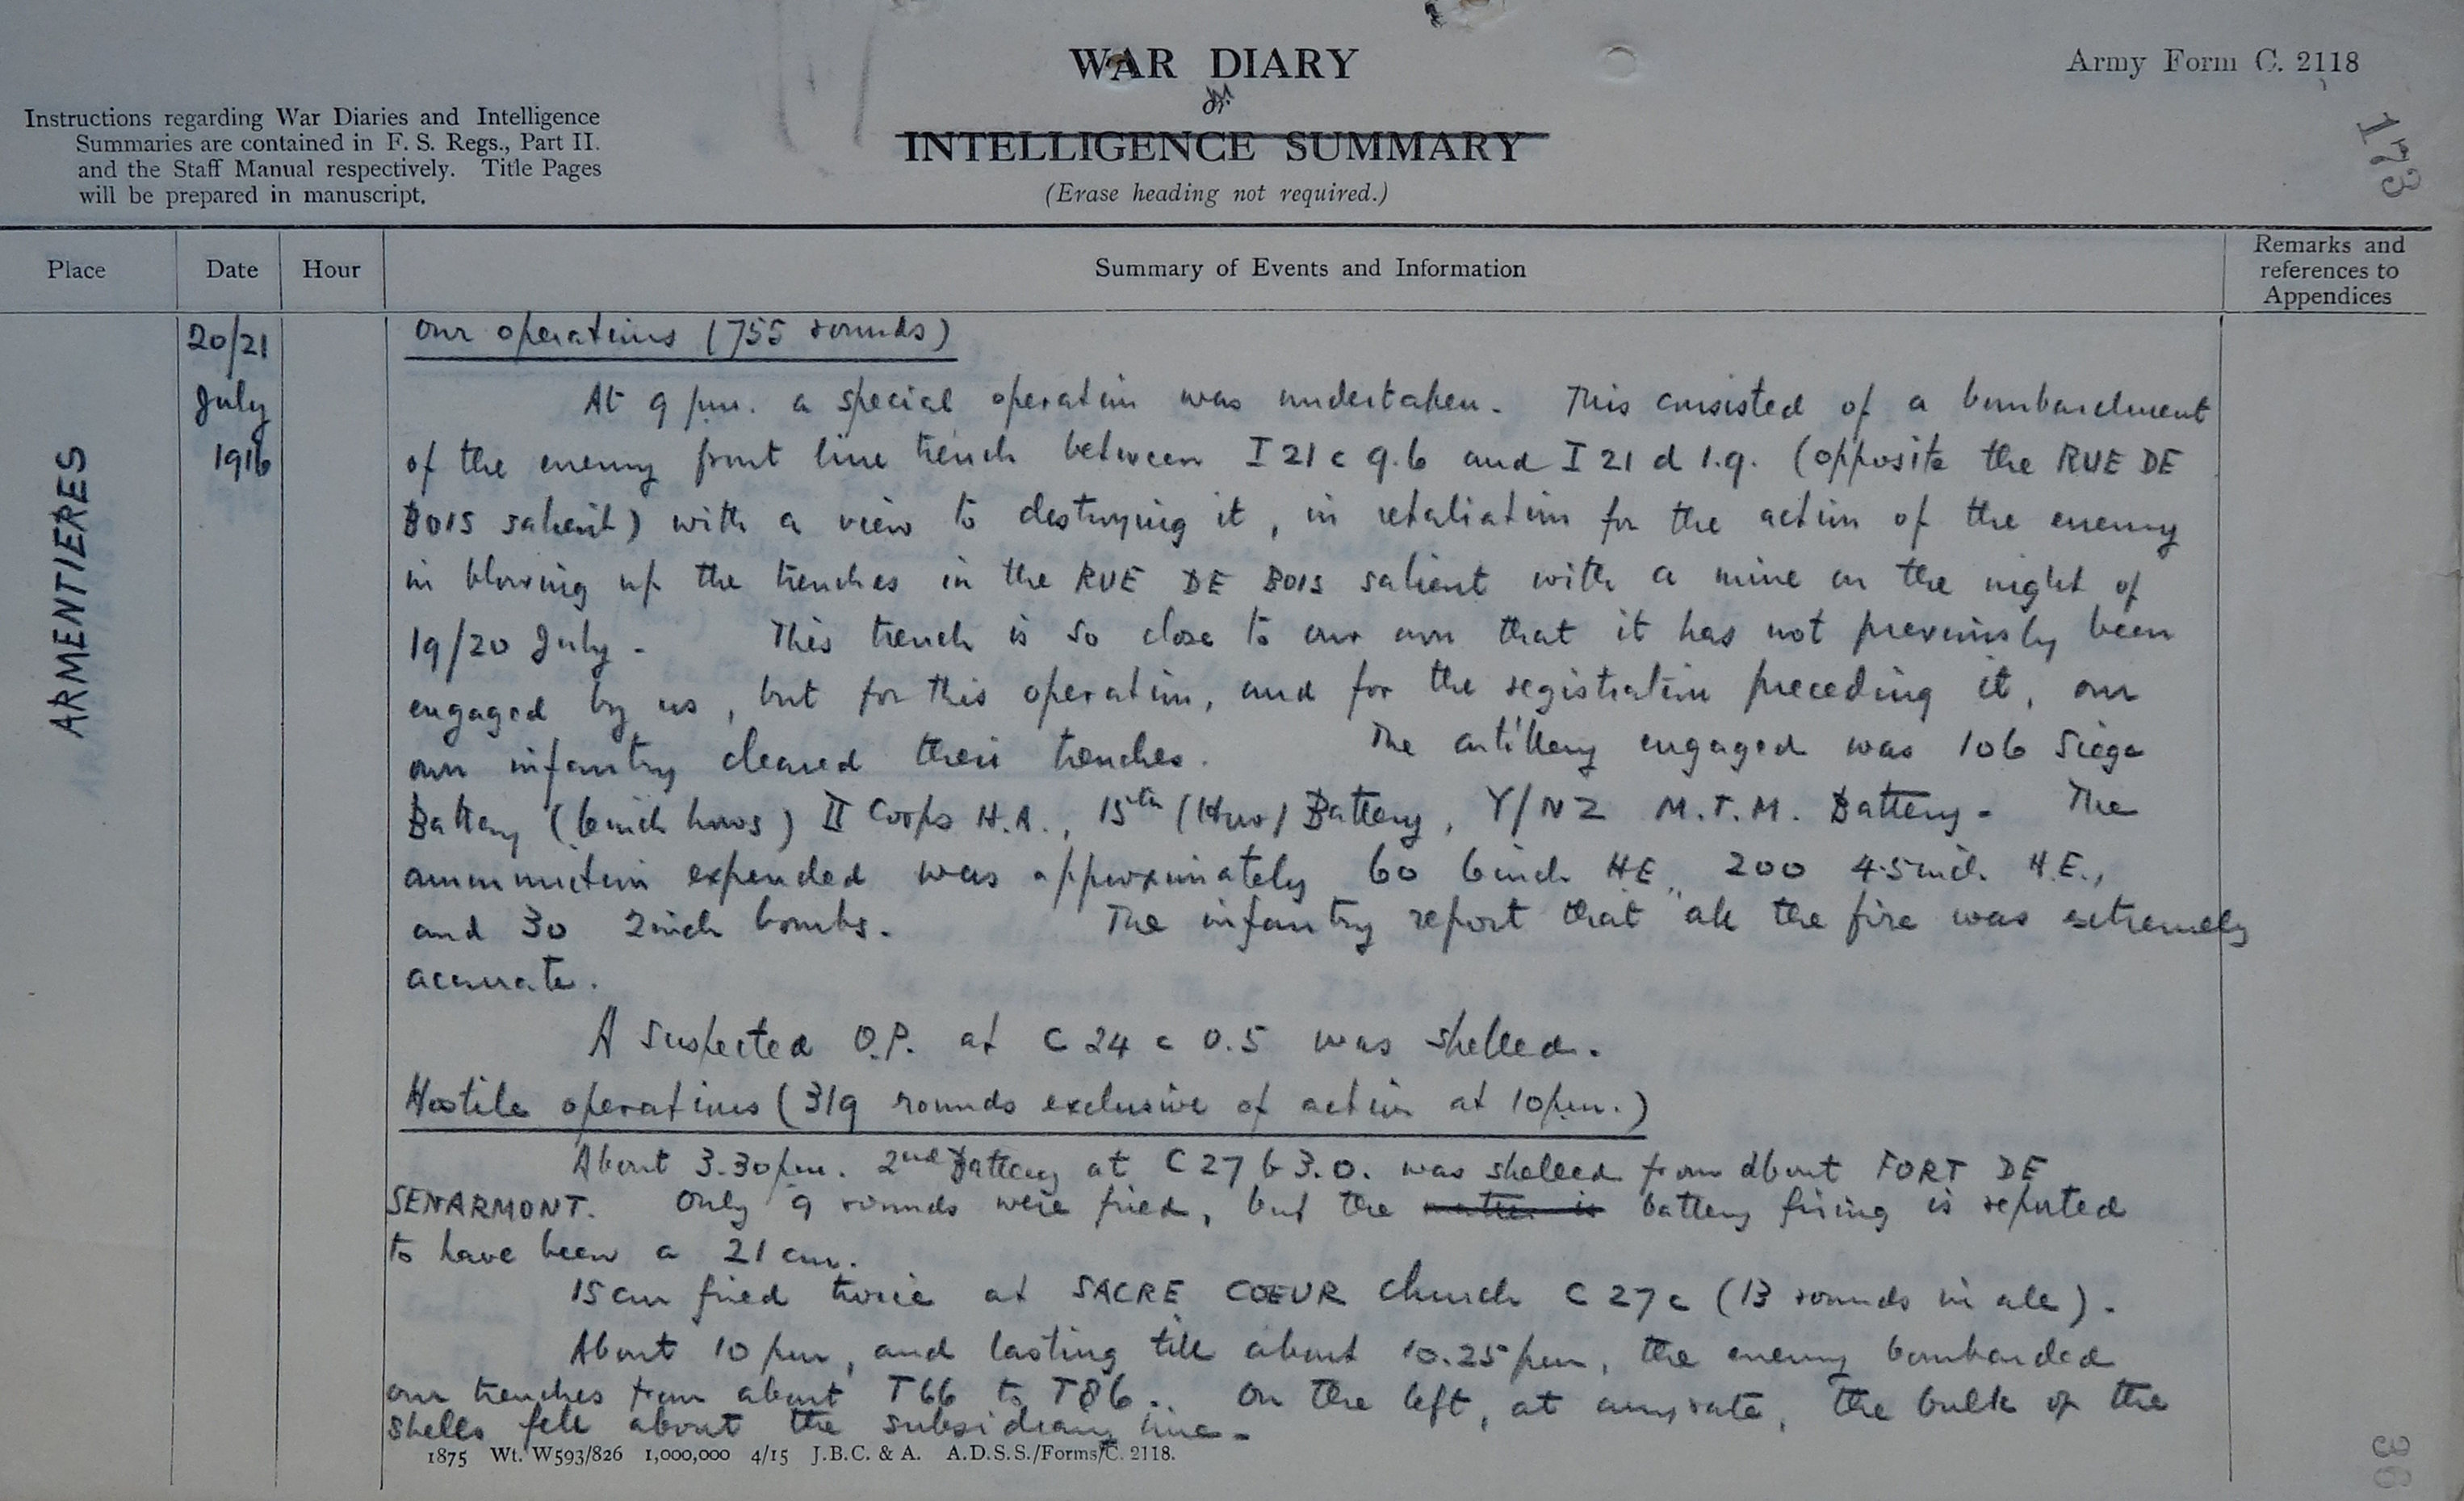 WAR DIARY
or
INTELLIGENCE SUMMARY
(Erase heading not required.)
Army Form C. 2118
173
Instructions regarding War Diaries and Intelligence
Summaries are contained in F. S. Regs., Part II.
and the Staff Manual respectively. Title Pages
will be prepared in manuscript.
Place Date Hour Summary of Events and Information Remarks and
references to
Appendices
ARMENTIERES
20/21
July
1916
Our operations (755 rounds)
At 9 pm. a special operation was undertaken. This consisted of a bombardment
of the enemy front line trench between I 21 c 9.6 and I 21 d 1.9. (opposite the RUE DE
BOIS salient) with a view to destroying it, in retaliation for the action of the enemy
in blowing up the trenches in the RUE DE BOIS salient with a mine on the night of
19/20 July. This trench is so close to our own that it has not previously been
engaged by us, but for this operation, and for the registration preceding it, our
own infantry cleared their trenches. The artillery engaged was 106 Siege
Battery (6 inch hows) II Corps H.A., 15th (How) Battery, Y/NZ M.T.M. Battery. The
ammunition expended was approximately 60 6 inch HE, 200 4.5 inch H.E.,
and 30 2 inch bombs. The infantry report that all the fire was extremely
accurate.
A suspected O.P. at C 24 c 0.5 was shelled.
Hostile operations (319 rounds exclusive of action at 10 pm.)
About 3.30 pm. 2nd Battery at C 27 b 3.0. was shelled from about FORT DE
SENARMONT. Only 9 rounds were fired, but the battery firing is reported
to have been a 21 cm.
15 cm fired twice at SACRE COEUR church C 27 c (13 rounds in all).
About 10 pm, and lasting till about 10.25 pm, the enemy bombarded
our trenches from about T 66 to T 86. On the left, at any rate, the bulk of the
shells fell about the subsidiary line.
1875 Wt. W593/826 1,000,000 4/15 J.B.C. & A. A.D.S.S./Forms/C. 2118.